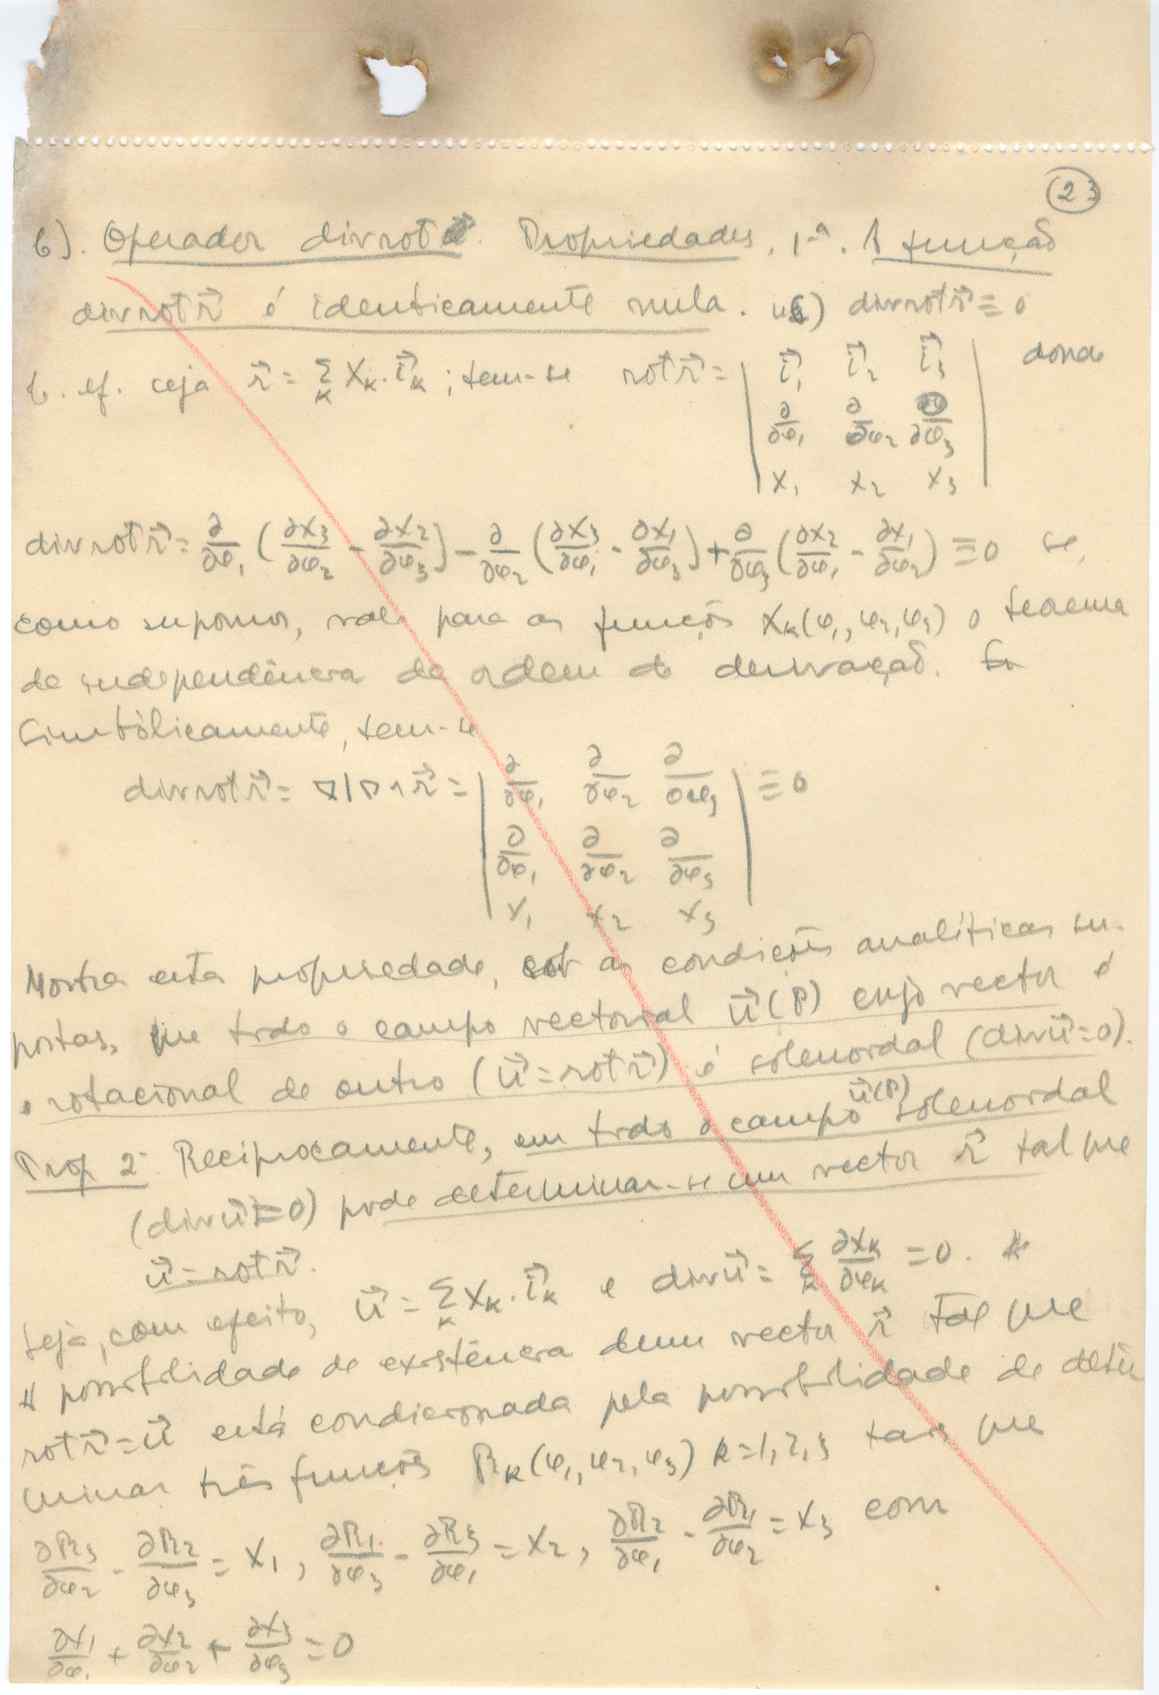 23
6). Operador div rot r⃗. Propriedades. 1ª. A função
div rot r⃗ é identicamente nula. 46) div rot r⃗ ≡ 0
E. ef. seja r⃗ = Σ_k X_k · i⃗_k ; tem-se rot r⃗ = | i⃗₁ i⃗₂ i⃗₃ | donde
| ∂/∂φ₁ ∂/∂φ₂ ∂/∂φ₃ |
| X₁ X₂ X₃ |
div rot r⃗ = ∂/∂φ₁ (∂X₃/∂φ₂ - ∂X₂/∂φ₃) - ∂/∂φ₂ (∂X₃/∂φ₁ - ∂X₁/∂φ₃) + ∂/∂φ₃ (∂X₂/∂φ₁ - ∂X₁/∂φ₂) ≡ 0 se,
como supomos, vale para as funções X_k(φ₁, φ₂, φ₃) o teorema
de independência da ordem de derivação.
Simbòlicamente, tem-se
div rot r⃗ = ∇|∇∧r⃗ = | ∂/∂φ₁ ∂/∂φ₂ ∂/∂φ₃ | ≡ 0
| ∂/∂φ₁ ∂/∂φ₂ ∂/∂φ₃ |
| X₁ X₂ X₃ |
Mostra esta propriedade, sob as condições analíticas su-
postas, que todo o campo vectorial u⃗(P) cujo vector é
o rotacional de outro (u⃗ = rot r⃗) é solenoidal (div u⃗ = 0).
Prop 2ª Reciprocamente, em todo o campo u⃗(P) solenoidal
(div u⃗ ≡ 0) pode determinar-se um vector r⃗ tal que
u⃗ = rot r⃗.
Seja, com efeito, u⃗ = Σ_k X_k · i⃗_k e div u⃗ = Σ_k ∂X_k/∂φ_k = 0.
A possibilidade de existência dum vector r⃗ tal que
rot r⃗ = u⃗ está condicionada pela possibilidade de deter
minar três funções R_k(φ₁, φ₂, φ₃) k=1,2,3 tais que
∂R₃/∂φ₂ - ∂R₂/∂φ₃ = X₁, ∂R₁/∂φ₃ - ∂R₃/∂φ₁ = X₂, ∂R₂/∂φ₁ - ∂R₁/∂φ₂ = X₃ com
∂X₁/∂φ₁ + ∂X₂/∂φ₂ + ∂X₃/∂φ₃ = 0